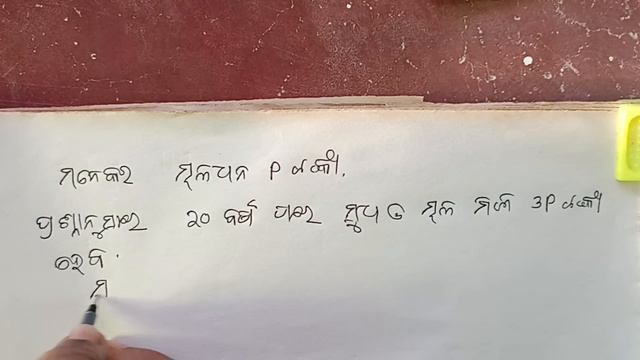 ମନେକର ମୂଳଧନ P ଟଙ୍କା.
ପ୍ରଶ୍ନାନୁସାରେ ୨୦ ବର୍ଷ ପରେ ସୁଧ ଓ ମୂଳ ମିଶି 3P ଟଙ୍କା
ହେବ.
ସ